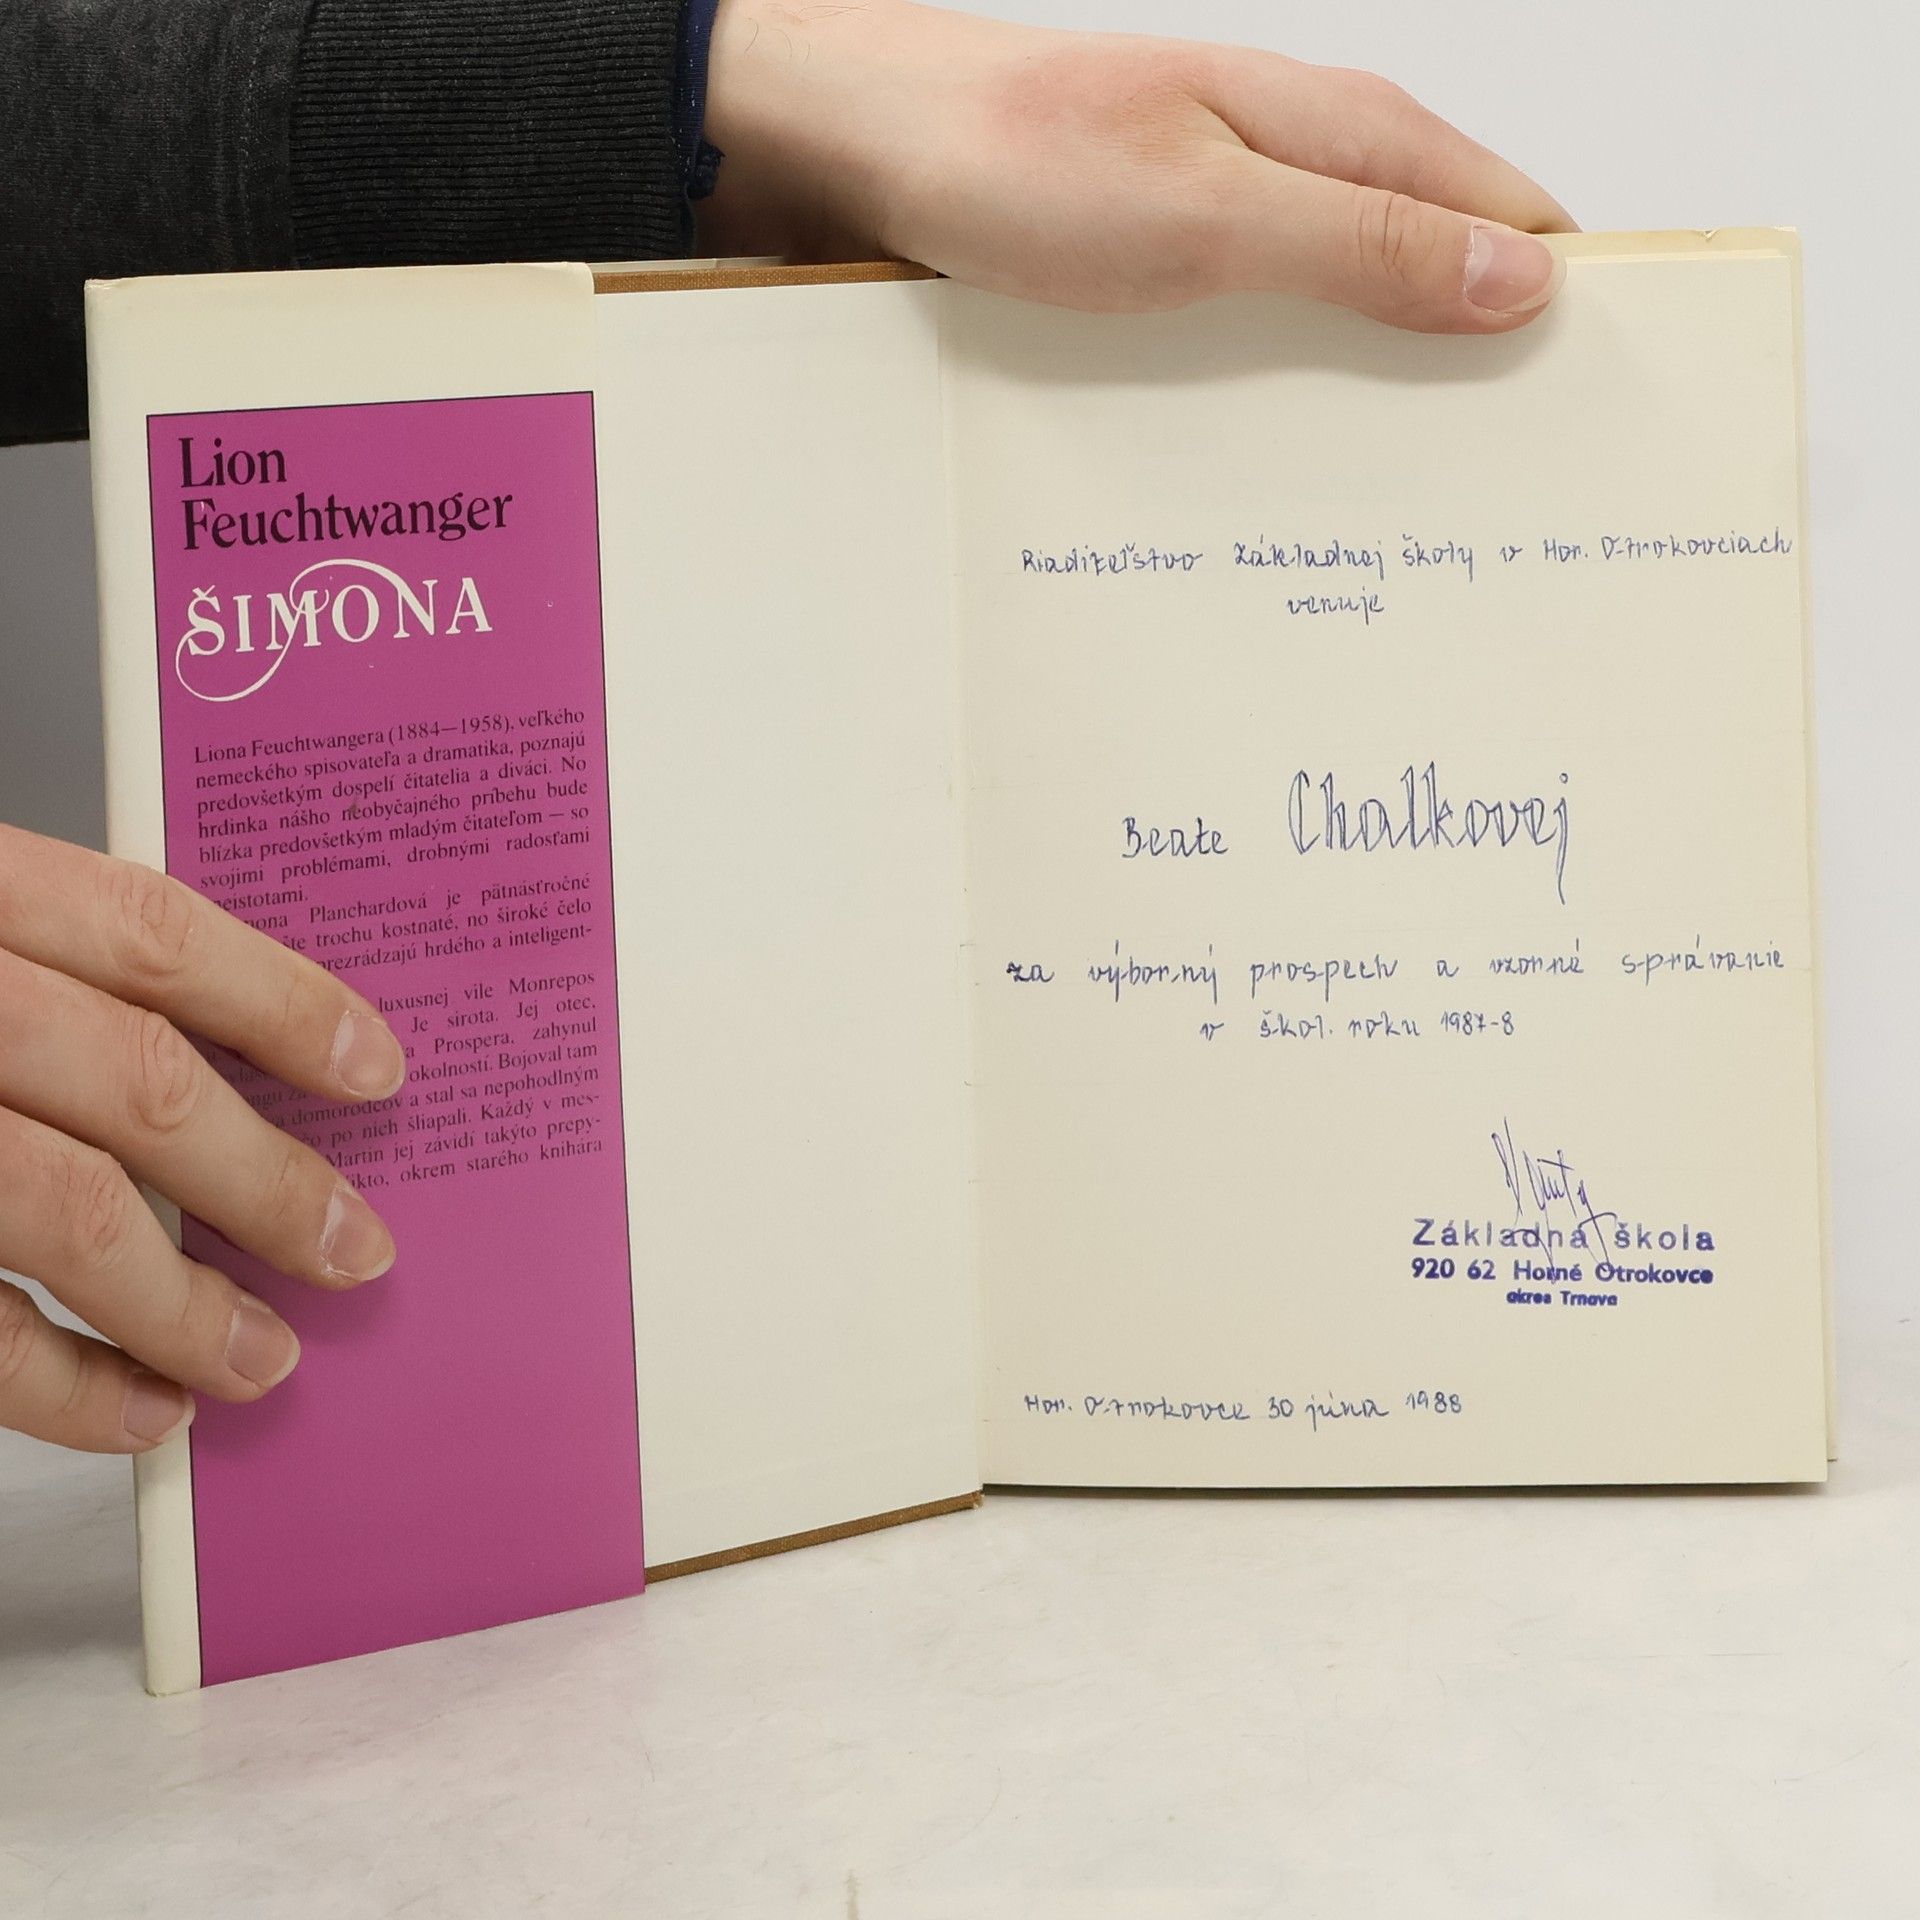 Lion
Feuchtwanger
ŠIMONA
Liona Feuchtwangera (1884—1958), veľkého
nemeckého spisovateľa a dramatika, poznajú
predovšetkým dospelí čitatelia a diváci. No
hrdinka nášho neobyčajného príbehu bude
blízka predovšetkým mladým čitateľom — so
svojimi problémami, drobnými radosťami
neistotami.
mona Planchardová je pätnásťročné
šte trochu kostnaté, no široké čelo
prezrádzajú hrdého a inteligent-
luxusnej vile Monrepos
Je sirota. Jej otec,
a Prospera, zahynul
okolností. Bojoval tam
domorodcov a stal sa nepohodlným
čo po nich šliapali. Každý v mes-
Martin jej závidí takýto prepy-
ikto, okrem starého knihára
Riaditeľstvo Základnej školy v Hor. Otrokovciach
venuje
Beate Chalkovej
za výborný prospech a vzorné správanie
v škol. roku 1987-8
Základná škola
920 62 Horné Otrokovce
okres Trnava
Hor. Otrokovce 30 júna 1988